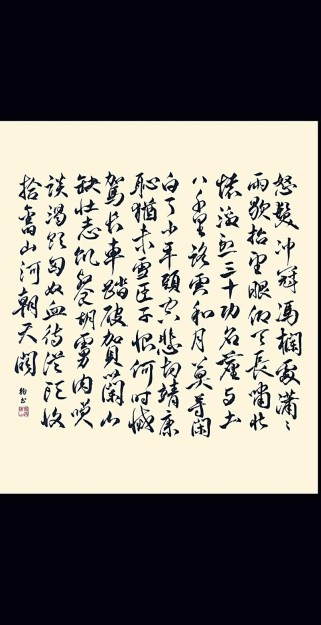 怒髮沖冠馮欄處瀟〻
雨歇抬望眼仰天長嘯壯
懷激烈三十功名塵與土
八千里路雲和月莫等閑
白了少年頭空悲切靖康
恥猶未雪臣子恨何時滅
駕長車踏破賀蘭山
缺壯志飢餐胡虜肉笑
談渴飲匈奴血待從頭收
拾舊山河朝天闕
書